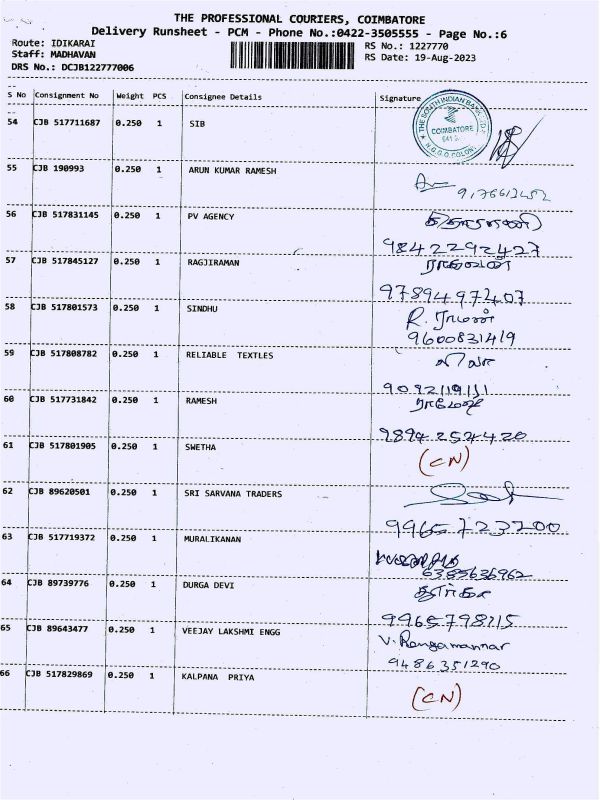 THE PROFESSIONAL COURIERS, COIMBATORE
Delivery Runsheet - PCM - Phone No.:0422-3505555 - Page No.:6
Route: IDIKARAI
RS No.: 1227770
Staff: MADHAVAN
RS Date: 19-Aug-2023
DRS No.: DCJB122777006
S No Consignment No Weight PCS Consignee Details Signature
54 CJB 517711687 0.250 1 SIB
THE SOUTH INDIAN BANK LTD
COIMBATORE
N.G.G.O.COLONY
55 CJB 190993 0.250 1 ARUN KUMAR RAMESH
56 CJB 517831145 0.250 1 PV AGENCY
9842292427
57 CJB 517845127 0.250 1 RAGJIRAMAN ராகவன்
9789497407
58 CJB 517801573 0.250 1 SINDHU R. ராமன்
9600831419
59 CJB 517808782 0.250 1 RELIABLE TEXTLES
9092119111
60 CJB 517731842 0.250 1 RAMESH ராமேஷ்
9894252420
61 CJB 517801905 0.250 1 SWETHA (CN)
62 CJB 89620501 0.250 1 SRI SARVANA TRADERS
9965723200
63 CJB 517719372 0.250 1 MURALIKANAN
64 CJB 89739776 0.250 1 DURGA DEVI துர்கா
9965798115
65 CJB 89643477 0.250 1 VEEJAY LAKSHMI ENGG V. Rangamannar
9486351290
66 CJB 517829869 0.250 1 KALPANA PRIYA (CN)